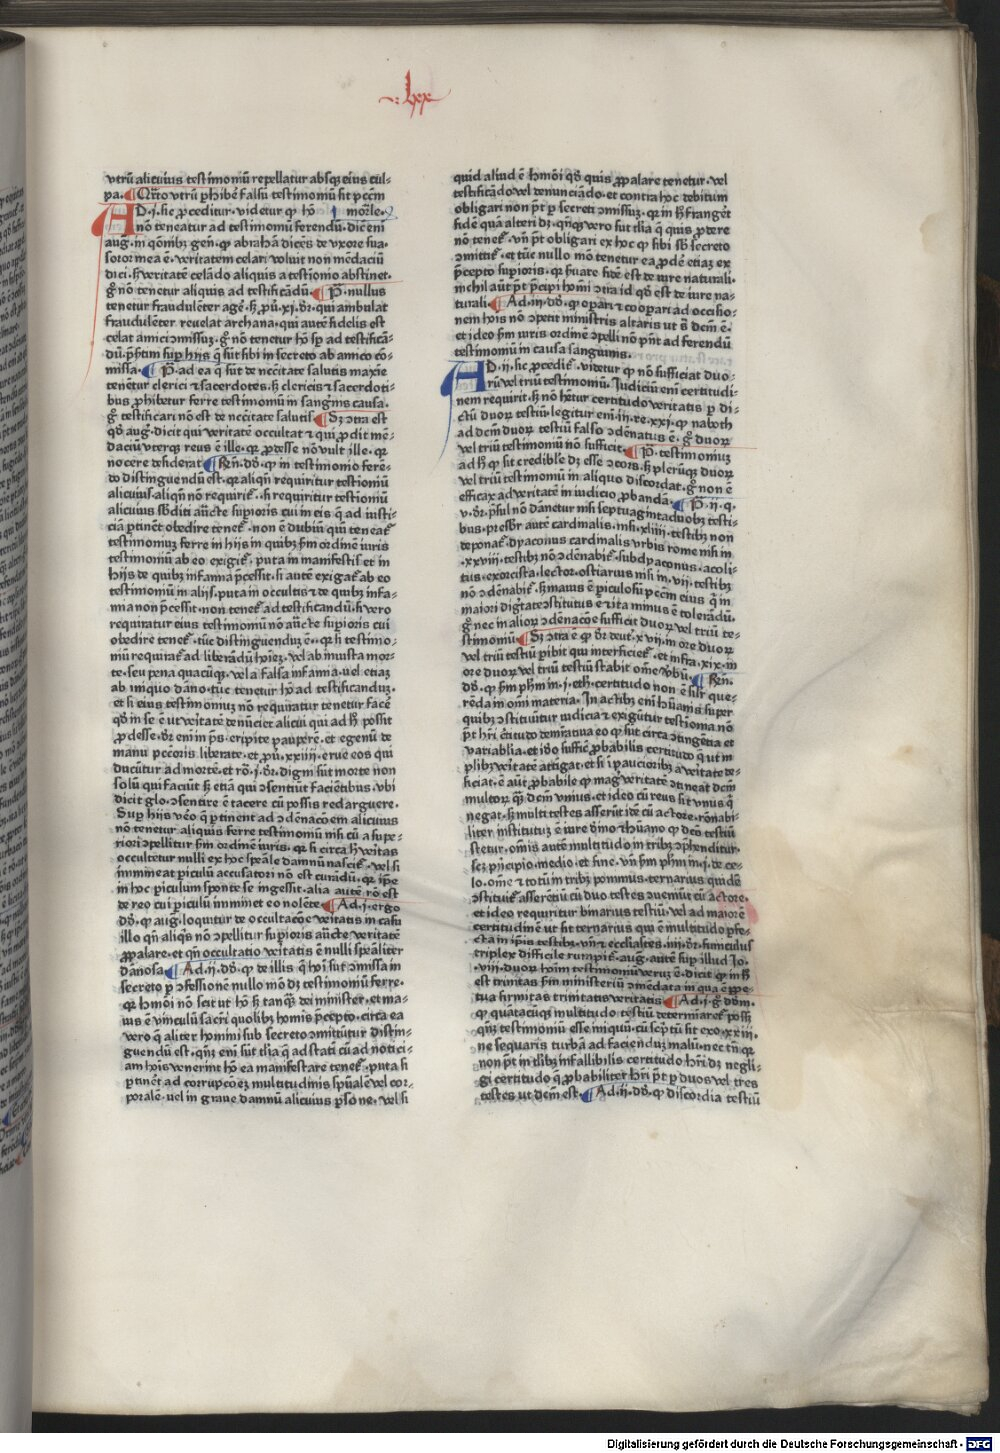 lxx
vtrū alicuius testimoniū repellatur absq̄ eius cul-
pa. Qrto vtrū ꝑhibē falsū testimoniū sit pccm̄
AD .j. sic ꝓceditur. videtur ꝙ hō mortle.
nō teneatur ad testimoniū ferendū. dic̄ em̄
aug. in q̄onib; gen̄. ꝙ abrahā dicēs de vxore sua.
soror mea ē. veritatem celari voluit non mendaciū
dici. s; veritatē celādo aliquis a testīonio abstinet.
gͦ nō tenetur aliquis ad testificādū. P. nullus
tenetur fraudulēter agē. s; ꝓū. xj. dr̄. qui ambulat
fraudulēter reuelat archana. qui autē fidelis est
celat amici ɔmissuz. gͦ nō tenetur hō sꝑ ad testificā-
dū. p̄sertim suꝑ hijs q̄ sūt sibi in secreto ab amico cō-
missa. P. ad ea q̄ sūt de nccitate salutis maxie
tenētur clerici ⁊ sacerdotes. s; clericis ⁊ sacerdoti-
bus ꝓhibetur ferre testimoniū in sangīnis causa.
gͦ testificari nō est de nccitate salutis. Sz ɔtra est
qd̄ aug. dicit qui veritatē occultat ⁊ qui ꝓdit mē-
daciū vterq; reus ē. ille. qr ꝓdesse nō vult. ille. qr
nocere desiderat. Rn̄. dd̄. ꝙ in testimonio ferē-
do distinguendū est. qr aliqn̄ requiritur testioniū
alicuius. aliqn̄ nō requirit̄. si requiritur testioniū
alicuius sb̄diti auc̄te suꝑioris cui in eis q̄ ad iusti-
ciā ꝑtinēt obedire tenet̄. non ē dubiū qn̄ teneat̄
testimoniuz ferre in hijs in quib; sm̄ ordinē iuris
testimoniū ab eo exigit̄. puta in manifestis et in
hijs de quib; infamia p̄cessit. si autē exigat̄ ab eo
testimoniū in alijs. puta in occultis ⁊ de quib; infa-
mia non p̄cessit. non tenet̄ ad testificandū. si vero
requiratur eius testimoniū nō auc̄te suꝑioris cui
obedire tenet̄. tūc distinguenduz ē. qr si testimo-
niū requirat̄ ad liberādū hōiez. vel ab iniusta mor-
te. seu pena quacūq;. vel a falsa infamia. uel etiaz
ab iniquo dāno. tūc tenetur hō ad testificanduz.
et si eius testimoniuz nō requiratur tenetur facē
qd̄ in se ē ut vͥitatē denūciet alicui qui ad h̄ possit
ꝓdesse. dr̄ em̄ in ps̄. eripite pauperē. et egenū de
manu pccoris liberate. et ꝓū. xxiiij. erue eos qui
ducūtur ad mortē. et rō. j. dr̄. digni sūt morte non
solū qui faciūt s; etiā qui ɔsentiūt faciētibus. vbi
dicit glo. ɔsentire ē tacere cū possis redarguere.
Suꝑ hijs vēo q̄ ꝑtinent ad ɔdēnacōem alicuius
nō tenetur aliquis ferre testimoniū nisi cū a supe-
riori ɔpellitur sm̄ ordinē iuris. qr si circa h̄ vͥitas
occultetur nulli ex hoc spēale damnū nascit̄. vel si
immineat piculū accusatori nō est curādū. qr ip̄e
in hoc piculum sponte se ingessit. alia autē rō est
de reo cui piculū imminet eo nolēte. Ad. j. ergo
dd̄. ꝙ aug. loquitur de occultacōe veritatis in casu
illo qn̄ aliq̄s nō ɔpellitur suꝑioris auc̄te veritatē
ꝓpalare. et qn̄ occultatio veritatis ē nulli spēaliter
dānosa. Ad. ij. dd̄. ꝙ de illis q̄ hoī sūt ɔmissa in
secreto ꝑ ɔfessionē nullo mō dz testimoniū ferre.
qr hmōi nō scit ut hō s; tanq̄ dei minister. et ma-
ius ē vinculū sacri quolib; homīs p̄cepto. circa ea
vero q̄ aliter homini sub secreto ɔmittūtur distin-
guendū est. qn̄z em̄ sūt tīia q̄ ad stati cū ad notici-
am hoīs venerint hō ea manifestare tenet̄. puta si
ꝑtinēt ad corrupcōez multitudinis spūalē vel cor-
poralē. uel in graue damnū alicuius ꝑsone. vel si
quid aliud ē hmōi qd̄ quis ꝓpalare tenetur. vel
testificādo vel denunciādo. et contra hoc debitum
obligari non pt̄ ꝑ secreti ɔmissuz. qr in h̄ frangēt
fidē quā alteri dz. qn̄q; vero sūt tīia q̄ quis ꝓdere
nō tenet̄. vn̄ pt̄ obligari ex hoc ꝙ sibi sb̄ secreto
ɔmittit̄. et tūc nullo mō tenetur ea ꝓdē etiaz ex
p̄cepto suꝑioris. qr s̄uare fidē est de iure naturali.
nichil autē pt̄ p̄cipi homī ɔtra id qd̄ est de iure na-
turali. Ad. iij. dd̄. ꝙ opari ⁊ coopari ad occisio-
nem hoīs nō ɔpetit ministris altaris ut s̄ dcm̄ ē.
et ideo sm̄ iuris ordinē ɔpelli nō pn̄t ad ferendū
testimoniū in causa sanguinis.
AD. ij. sic ꝓcedit̄. videtur ꝙ nō sufficiat duo-
rū vel triū testimoniū. Iudiciū em̄ certitudi-
nem requirit. s; nō hētur certitudo veritatis ꝑ di-
ctū duor̄ testiū. legitur em̄. iij. re. xxj. ꝙ naboth
ad dcm̄ duor̄ testiū falso ɔdēnatus ē. gͦ duor̄
vel triū testimoniū nō sufficit. P. testimoniuz
ad h̄ ꝙ sit credibile dz esse ɔcors. s; plerūq; duor̄
vel triū testimoniū in aliquo discordat. gͦ non ē
efficax ad veritatē in iudicio ꝓbandā. P. ij. q.
v. dr̄. p̄sul nō dānetur nisi septuagīta duob; testi-
bus. presbr̄ autē cardinalis. nisi xliiij. testib; non
deponat̄. dyaconus cardinalis vrbis rome nisi in
.xxviij. testib; nō ɔdēnabit̄. subdyaconus. acoli-
tus. exorcista. lector. ostiarius nisi in. vij. testib;
nō ɔdēnabit̄. s; maius ē piculosū pccm̄ eius q̄ in
maiori diḡtate ɔstitutus ē ⁊ ita minus ē tolerādū.
gͦ nec in alior̄ ɔdēnacōe sufficit duor̄ vel triū te-
stimoniū. Sz ɔtra ē ꝙ dr̄ deut̄. xvij. in ore duor̄
vel triū testiū ꝑibit qui interficiet̄. et infra. xix. in
ore duor̄ vel triū testiū stabit om̄e v̄bū. Rn̄.
dd̄. ꝙ sm̄ phm̄ in. j. eth̄. certitudo non ē silr̄ que-
rēda in omī materia. In actib; em̄ hūanis super
quib; ɔstituūtur iudicia ⁊ exigūtur testīonia nō
pt̄ hr̄i c̄titudo demr̄atiua eo ꝙ sūt circa ɔtingētia et
variabilia. et ido suffic̄ ꝓbabilis certitudo q̄ ut in
plib; vͥitatē attigat. et si in paucioribꝫ a vͥitate de-
ficiat. ē aūt ꝓbabile ꝙ maḡ veritatē ɔtineat dcm̄
multor̄ q̄ꝫ dcm̄ vnius. et ideo cū reus sit vnus q̄
negat. s; multi testes asseriūt idē cū actore. rōnabi-
liter institutuz ē iure dīuo ⁊ hūano ꝙ dcō testiū
stetur. om̄is autē multitudo in trib; ɔp̄henditur.
scz p̄ncipio. medio. et fine. vn̄ sm̄ phm̄ in. j. de ce-
lo. om̄e ⁊ totū in trib; ponimus. ternarius quidē
ɔstituit̄ asserētiū cū duo testes ɔueniūt cū actore.
et ideo requiritur binarius testiū. vel ad maiorē
certitudinē ut sit ternarius qui ē multitudo ꝑfe-
cta in ip̄is testib;. vn̄ ⁊ eccl̄iastes. iiij. dr̄. funiculus
triplex difficile rumpit̄. aug. autē suꝑ illud Jo.
.viij. duor̄ hoīm testimoniū veruz ē. dicit ꝙ in h̄
est trinitas ꝑ misteriū ɔmēdata in qua ē ꝑpe-
tua firmitas trinitatis veritatis. Ad. j. gͦ dōm.
ꝙ quātacūq; multitudo testiū determiaret̄ poss;
qn̄z testimoniū esse iniquū. cū sc̄ptū sit exo. xxiij.
ne sequaris turbā ad faciendū malū. nec tn̄ qr
non pt̄ in tīib; infallibilis certitudo hr̄i dz negli-
gi certitudo q̄ ꝓbabiliter hr̄i pt̄ ꝑ duos vel tres
testes ut dcm̄ est. Ad. ij. dd̄. ꝙ discordia testiū
Digitalisierung gefördert durch die Deutsche Forschungsgemeinschaft - DFG